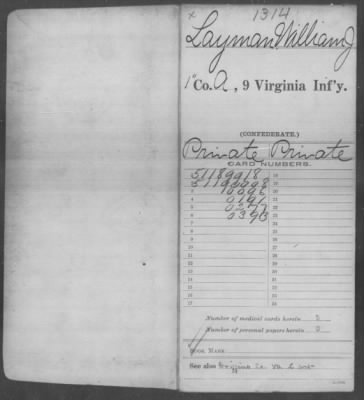 x 1314
Layman William J
1" Co. A, 9 Virginia Inf'y.
(CONFEDERATE.)
Private Private
CARD NUMBERS.
1 51189918 18
2 51190098 19
20
4 0191 21
5 22
6 23
7 24
8 25
9 26
10 27
11 28
12 29
13 30
14 31
15 32
16 33
17 34
Number of medical cards herein 0
Number of personal papers herein 0
BOOK MARK
See also Co. Va